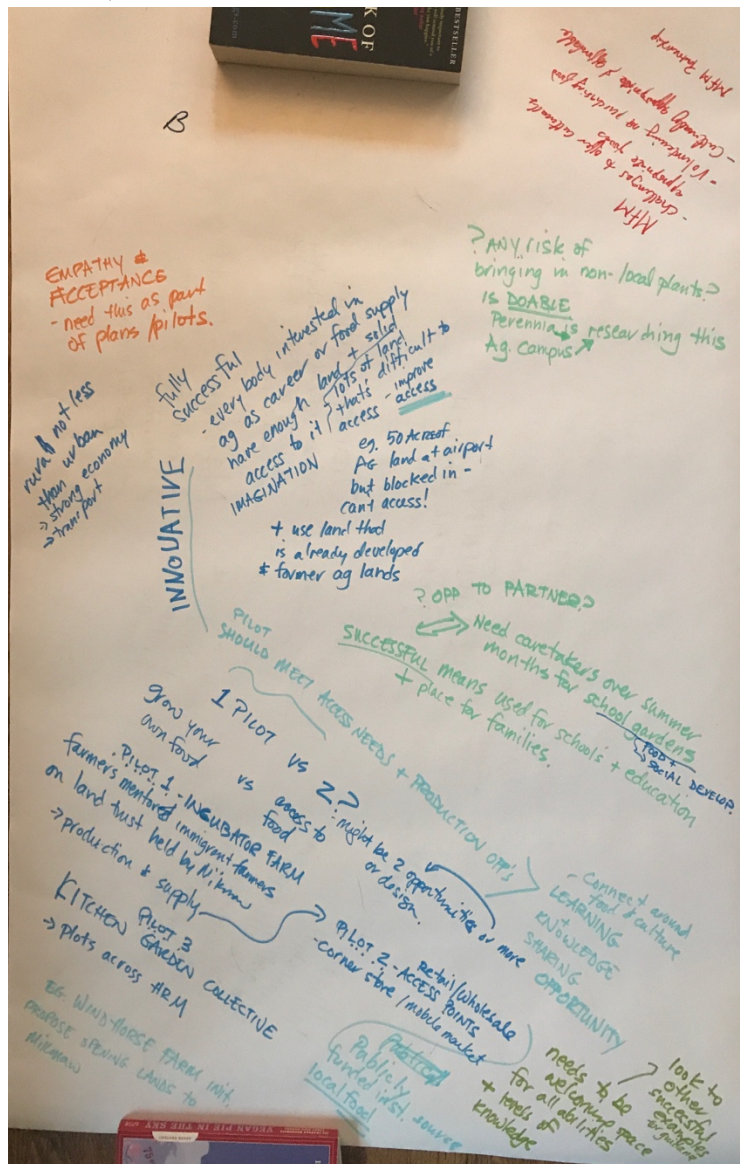 BESTSELLER
K OF
ME
B
MFM Partnership
- Culturally appropriate & affordable
- Volunteering vs purchasing food
- challenges to offer culturally
appropriate foods
MFM
EMPATHY &
ACCEPTANCE
- need this as part
of plans/pilots.
? ANY risk of
bringing in non-local plants?
IS DOABLE
Perennia is researching this
Ag. Campus
rural not less
than urban
→ strong economy
→ transport
INNOVATIVE
fully
successful
- every body interested in
ag as career or food supply
have enough land + solid
access to it
IMAGINATION
lots of land
that's difficult to
access - improve
access
eg. 50 ACRE of
AG land at airport
but blocked in -
cant access!
+ use land that
is already developed
& former ag lands
? OPP TO PARTNER?
Need caretakers over summer
months for school gardens
FOOD +
SOCIAL DEVELOP.
SUCCESSFUL means used for schools + education
+ place for families.
PILOT
SHOULD MEET ACCESS NEEDS + PRODUCTION OPP'S
1 PILOT vs 2?
grow your
own food
vs
access to
food
: might be 2 opportunities or more
or design.
• PILOT 1 - INCUBATOR FARM
farmers mentored immigrant farmers
on land trust held by
→ production & supply
PILOT 2 - ACCESS POINTS
Retail/Wholesale
- corner store/mobile market
PILOT 3
KITCHEN GARDEN COLLECTIVE
→ plots across HRM
- connect around
food & culture
LEARNING
+
KNOWLEDGE
SHARING
OPPORTUNITY
EG. WIND-HORSE FARM INIT.
PROPOSE OPENING LANDS TO
MIKMAW
Publicly
funded inst. source
local food
needs to be
welcoming space
for all abilities
+ levels of
knowledge
look to
other
successful
examples
for guidance
VEGAN PIE IN THE SKY